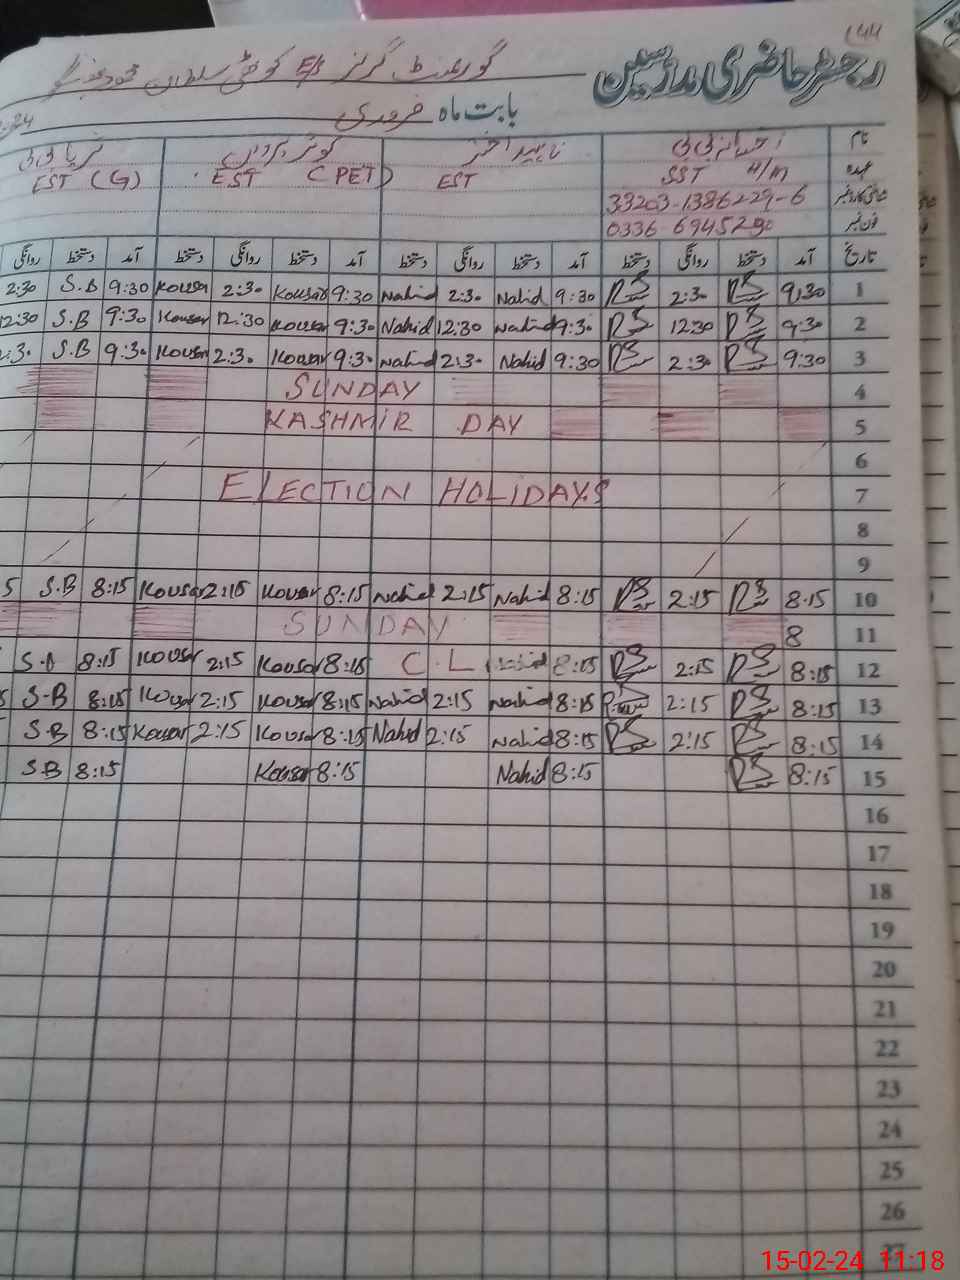 144
رجسٹر حاضری مدرسین
گورنمنٹ گرلز E/S کوٹلی سلطان محمود
بابت ماہ فروری
نام ناہید اختر کوثر پروین ثریا بی بی
عہدہ SST H/M EST EST (PET) EST (G)
33203-1386229-6
فون نمبر 0336-6945290
تاریخ آمد دستخط روانگی دستخط آمد دستخط روانگی دستخط آمد دستخط روانگی دستخط آمد دستخط روانگی
1 9:30 2:30 9:30 Nahid 2:30 Nahid 9:30 Kousar 2:30 Kousar 9:30 S.B 2:30
2 9:30 12:30 9:30 Nahid 12:30 Nahid 9:30 Kousar 12:30 Kousar 9:30 S.B 12:30
3 9:30 2:30 9:30 Nahid 2:30 Nahid 9:30 Kousar 2:30 Kousar 9:30 S.B 2:30
4 SUNDAY
5 KASHMIR DAY
6
7 ELECTION HOLIDAYS
8
9
10 8:15 2:15 8:15 Nahid 2:15 Nahid 8:15 Kousar 2:15 Kousar 8:15 S.B 5
11 8 SUNDAY
12 8:15 2:15 8:15 Nahid C.L 8:15 Kousar 2:15 Kousar 8:15 S.B
13 8:15 2:15 8:15 Nahid 2:15 Nahid 8:15 Kousar 2:15 Kousar 8:15 S-B 5
14 8:15 2:15 8:15 Nahid 2:15 Nahid 8:15 Kousar 2:15 Kousar 8:15 S.B
15 8:15 8:15 Nahid 8:15 Kousar 8:15 S.B
16
17
18
19
20
21
22
23
24
25
26
27
15-02-24 11:18